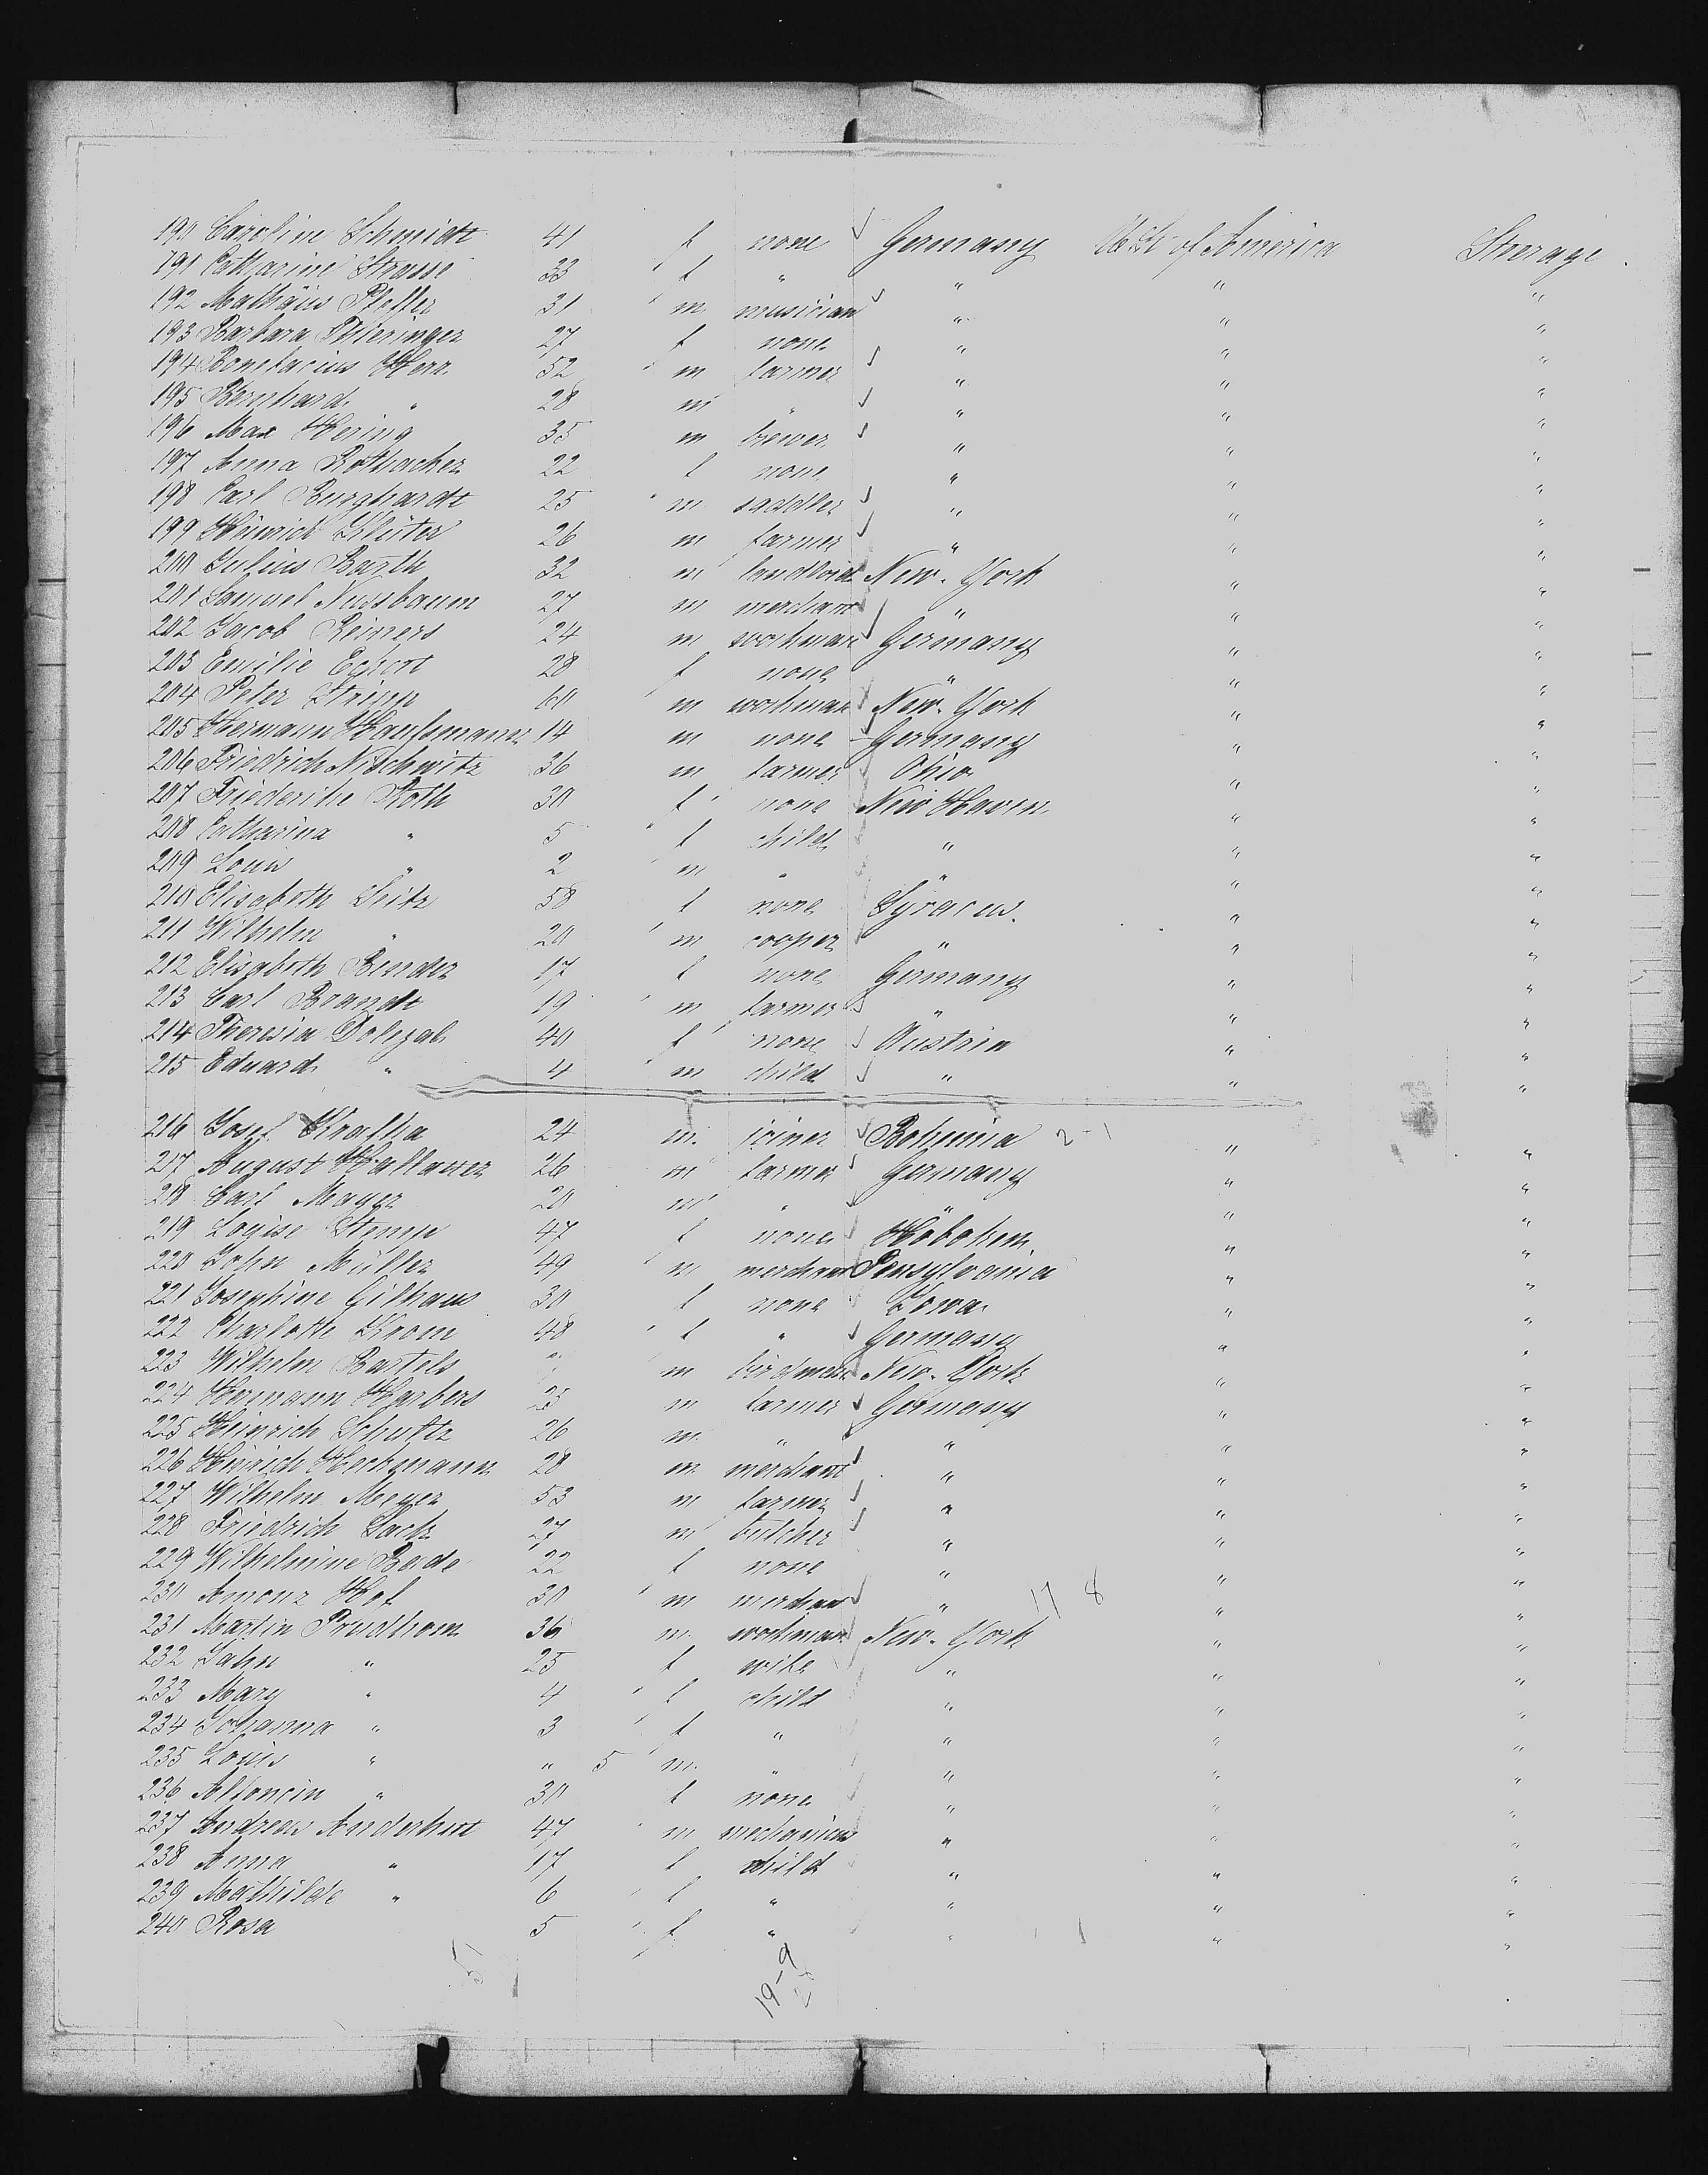 190 Caroline Schmidt 41 f none Germany U St of America Steerage.
191 Catharine Strasse 33 f " " " "
192 Mathäus Pfeffer 31 m musician " " "
193 Barbara Thieringer 27 f none " " "
194 Bonifacius Herr 52 m farmer " " "
195 Bernhard " 28 m " " " "
196 Max Hering 35 m brewer " " "
197 Anna Rothacker 22 f none " " "
198 Carl Burghardt 25 m saddler " " "
199 Heinrich Klüter 26 m farmer " " "
200 Julius Barth 32 m landlord New-York " "
201 Samuel Nussbaum 27 m merchant " " "
202 Jacob Reiners 24 m workman Germany " "
203 Emilie Eckort 28 f none " " "
204 Peter Strimp 60 m workman New-York " "
205 Hermann Haufsmann 14 m none Germany " "
206 Friedrich Nischwitz 36 m farmer Ohio " "
207 Friederike Roth 30 f none New Haven " "
208 Catharina " 5 f child " " "
209 Louis " 2 m " " " "
210 Elisabeth Seitz 58 f none Syracus. " "
211 Wilhelm " 20 m cooper " " "
212 Elisabeth Binder 17 f none Germany " "
213 Carl Brandt 19 m farmer " " "
214 Theresia Dolezal 40 f none Austria " "
215 Eduard " 4 m child " " "
216 Josef Krafka 24 m. joiner Bohemia 2-1 " "
217 August Hallauer 26 m farmer Germany " "
218 Carl Mayer 20 m " " " "
219 Louise Stemp 47 f none Hoboken. " "
220 John Müller 49 m merchant Pensylvania " "
221 Josephine Gilhaus 30 f none Iowa " "
222 Charlotte Krom 48 f " Germany " "
223 Wilhelm Bartels m birdman New-York " "
224 Hermann Harbers 25 m farmer Germany " "
225 Heinrich Schultz 26 m. " " " "
226 Heinrich Heckmann 28 m. merchant " " "
227 Wilhelm Meyer 53 m farmer " " "
228 Friedrich Sack 27 m butcher " " "
229 Wilhelmine Bade 22 f none " " "
230 Amonz Hof 30 m merchant " 17 8 " "
231 Martin Prudhom 36 m. workman New-York " "
232 Jahn " 25 f wife " " "
233 Mary " 4 f child " " "
234 Johanna " 3 f " " " "
235 Louis " " 5 m. " " " "
236 Alfoncin " 30 f none " " "
237 Andreas Anderhurt 47 m mechanicus " " "
238 Anna " 17 f child " " "
239 Mathilde " 6 f " " " "
240 Rosa 5 f " " " "
19-9